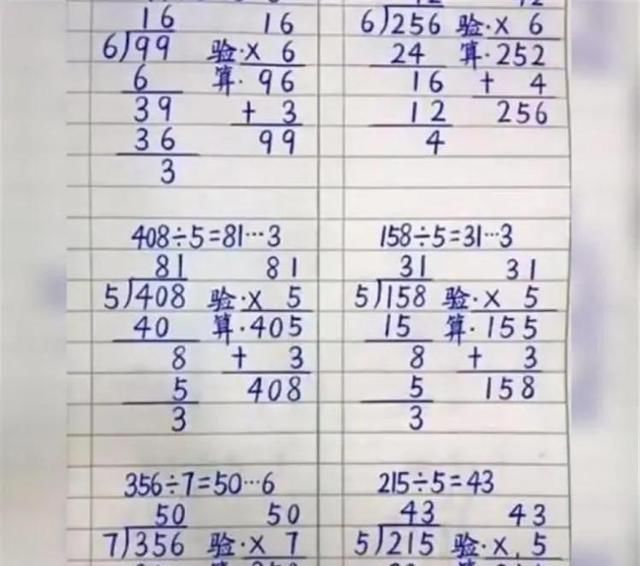 16 16
6)99 验·× 6
6 算·96
39 + 3
36 99
3
6)256 验·× 6
24 算·252
16 + 4
12 256
4
408÷5=81…3
81 81
5)408 验·× 5
40 算·405
8 + 3
5 408
3
158÷5=31…3
31 31
5)158 验·× 5
15 算·155
8 + 3
5 158
3
356÷7=50…6
50 50
7)356 验·× 7
215÷5=43
43 43
5)215 验·× 5